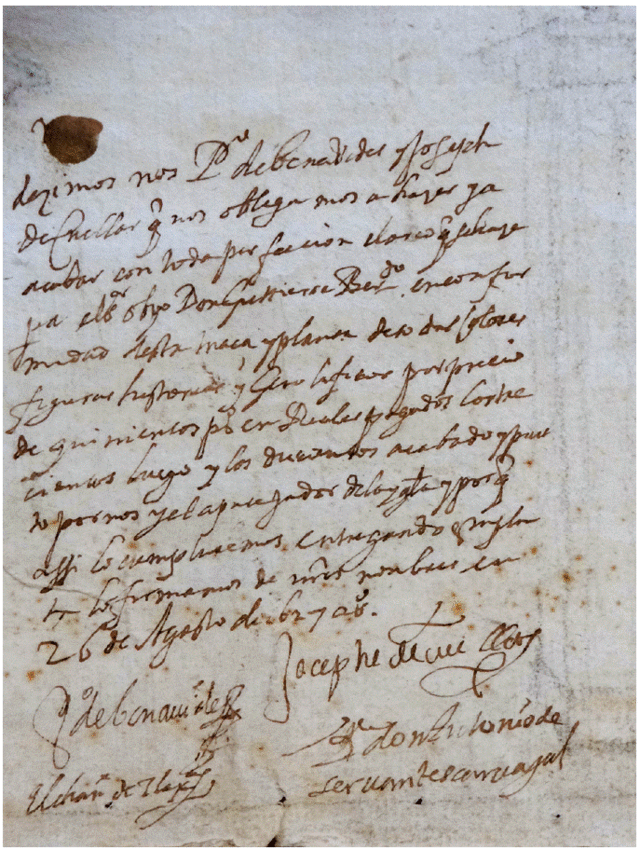 dezimos nos Pe de benavides y Joseph
de Cuellar q nos obligamos a hazer ya
acabar con toda perfecion el arco q se haze
pa el sr obpo Don Gutierre Berdo en confor
midad desta traca y planta de todas
figuras historias y Gerolificos por precio
de quinientos pos en Reales pagados los tre
cientos luego y los ducientos acabado y pues
to por nos y el aparejador de la ygla y porq
assi lo cumpliremos entregando
lo firmamos de nros nonbres en
26 de Agosto de
Po de benavides
Josephe de cuellar
don Antonio de
servantes carvajal